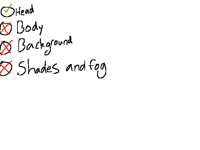 Head
Body
Background
Shades and fog